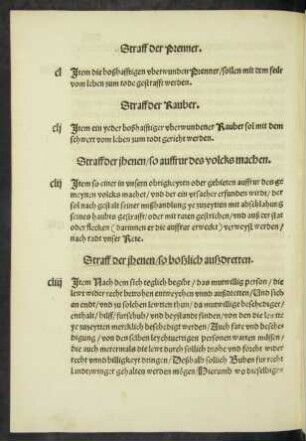 Straff der Prenner.
cl Jtem die boßhafftigen vberwunden Prenner/sollen mit dem feür
vom leben zum tode gestrafft werden.
Straff der Rauber.
clj Jtem ein yeder boßhafftiger vberwundener Rauber sol mit dem
schwert vom leben zum tode gericht werden.
Straff der jhenen/so auffrur des volcks machen.
clij Jtem so einer in vnsern obrigkeyten oder gebieten auffrur des ge
meynen volcks machet/vnd der ein vrsacher erfunden wirdt/der
sol nach gestalt seiner mißhandlung ye zuzeyten mit abschlahung
seines haubts gestrafft: oder mit ruten gestrichen/vnd auß der stat
oder flecken (darinnen er die auffrur erweckt) verweyst werden/
nach radt vnser Rete.
Straff der jhenen/so boßlich außdretten.
cliij Jtem Nach dem sich teglich begibt/das mutwillig person/die
lewt wider recht betrohen entweychen vnnd außdretten/Vnd sich
an endt/vnd zu solchen lewten thun/da mutwillige beschediger/
enthalt/hilff/furschub/vnd beystandt finden/von den die lewte
ye zuzeyten mercklich beschedigt werden/Auch fare vnd beschedi
digung/von den selben leychtuertigen personen warten müssen/
die auch mermals die lewt durch sollich drohe vnd forcht wider
recht vnnd billigkeyt dringen/Deßhalb sollich Buben fur recht
landtzwinger gehalten werden mögen Hierumb wo dieselbigen